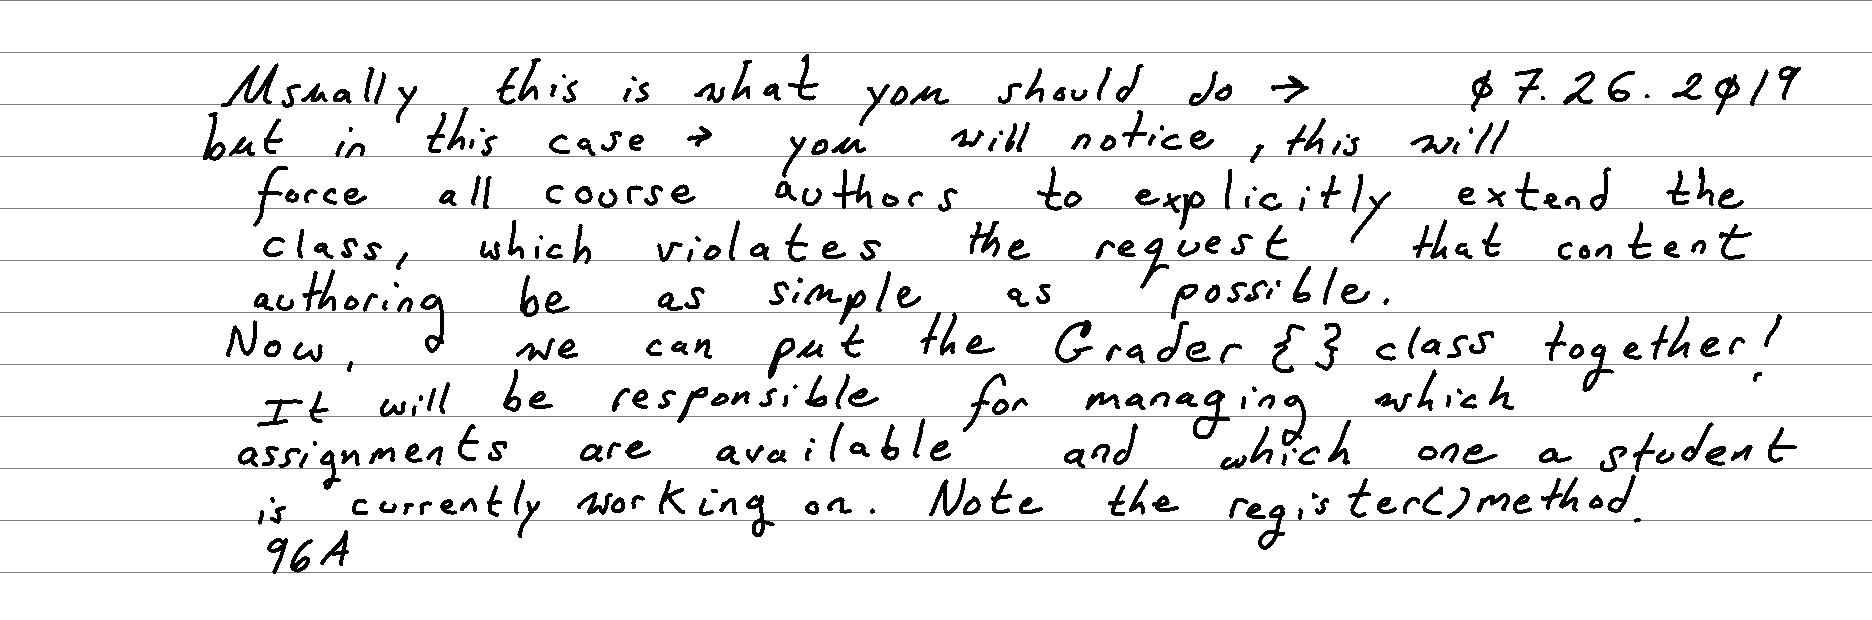 Usually this is what you should do → 07.26.2019
but in this case → you will notice, this will
force all course authors to explicitly extend the
class, which violates the request that content
authoring be as simple as possible.
Now, we can put the Grader {} class together!
It will be responsible for managing which
assignments are available and which one a student
is currently working on. Note the register() method.
96A